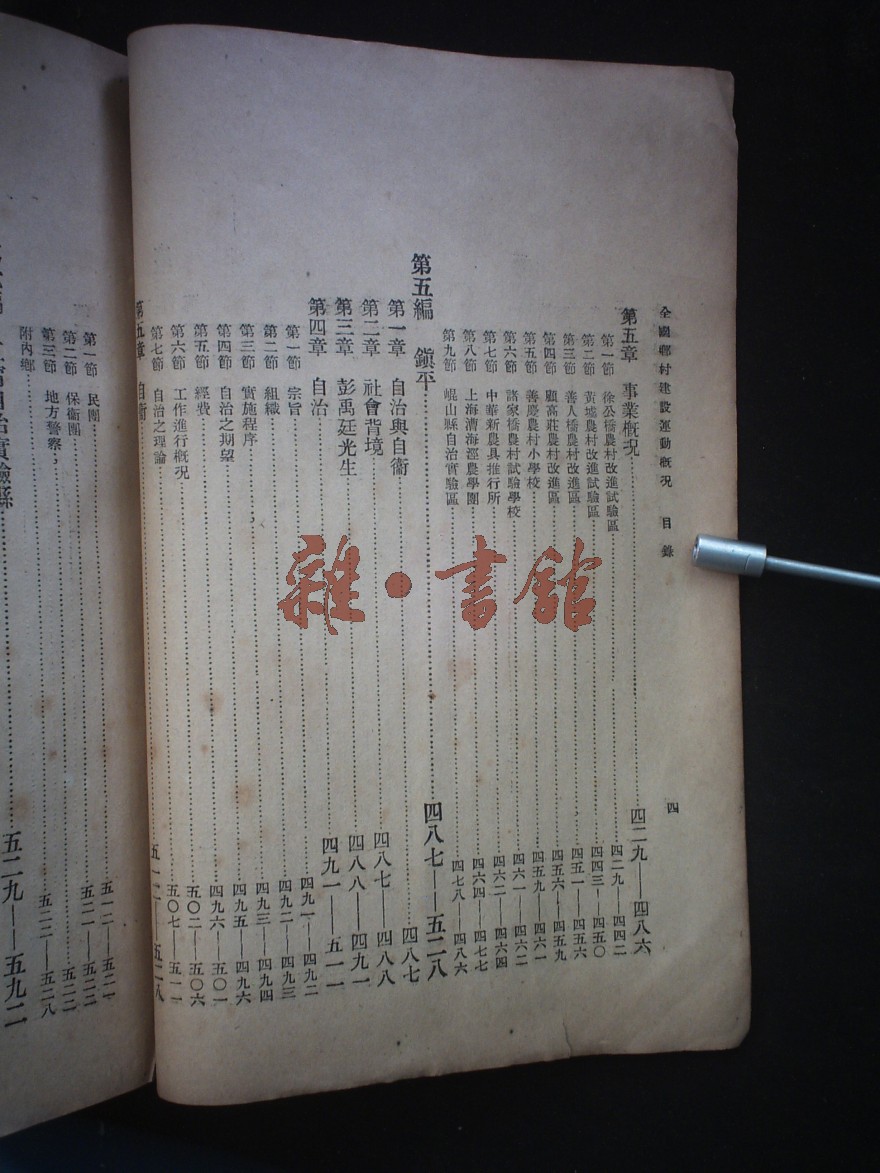 全國鄉村建設運動概況 目錄 四
第五章 事業概況 四二九——四八六
第一節 徐公橋農村改進試驗區 四二九——四四二
第二節 黃墟農村改進試驗區 四四三——四五〇
第三節 善人橋農村改進區 四五一——四五六
第四節 顧高莊農村改進區 四五六——四五九
第五節 善慶農村小學校 四五九——四六一
第六節 諸家橋農村試驗學校 四六一——四六二
第七節 中華新農具推行所 四六二——四六四
第八節 上海漕河涇農學團 四六四——四七七
第九節 崐山縣自治實驗區 四七八——四八六
第五編 鎭平 四八七——五二八
第一章 自治與自衞 四八七
第二章 社會背境 四八七——四八八
第三章 彭禹廷先生 四八八——四九一
第四章 自治 四九一——五一一
第一節 宗旨 四九一——四九二
第二節 組織 四九二——四九三
第三節 實施程序 四九三——四九四
第四節 自治之期望 四九五——四九六
第五節 經費 四九六——五〇一
第六節 工作進行概況 五〇二——五〇六
第七節 自治之理論 五〇七——五一一
第五章 自衞 五一二——五二八
第一節 民團 五一二——五二一
第二節 保衞團 五二一——五二二
第三節 地方警察 五二二
附內鄉 五二二——五二八
治實驗縣 五二九——五九二
雜·書館